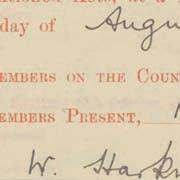 day of Augu
EMBERS ON THE COUN
EMBERS PRESENT,
W. Hark